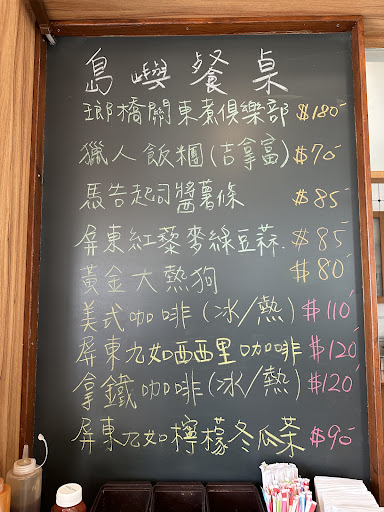 島嶼餐桌
瑯橋關東煮俱樂部 $180-
獵人飯糰(吉拿富) $70-
馬告起司醬薯條 $85-
屏東紅藜麥綠豆蒜. $85-
黃金大熱狗 $80-
美式咖啡(冰/熱) $110-
屏東九如西西里咖啡 $120-
拿鐵咖啡(冰/熱) $120-
屏東九如檸檬冬瓜茶 $90-